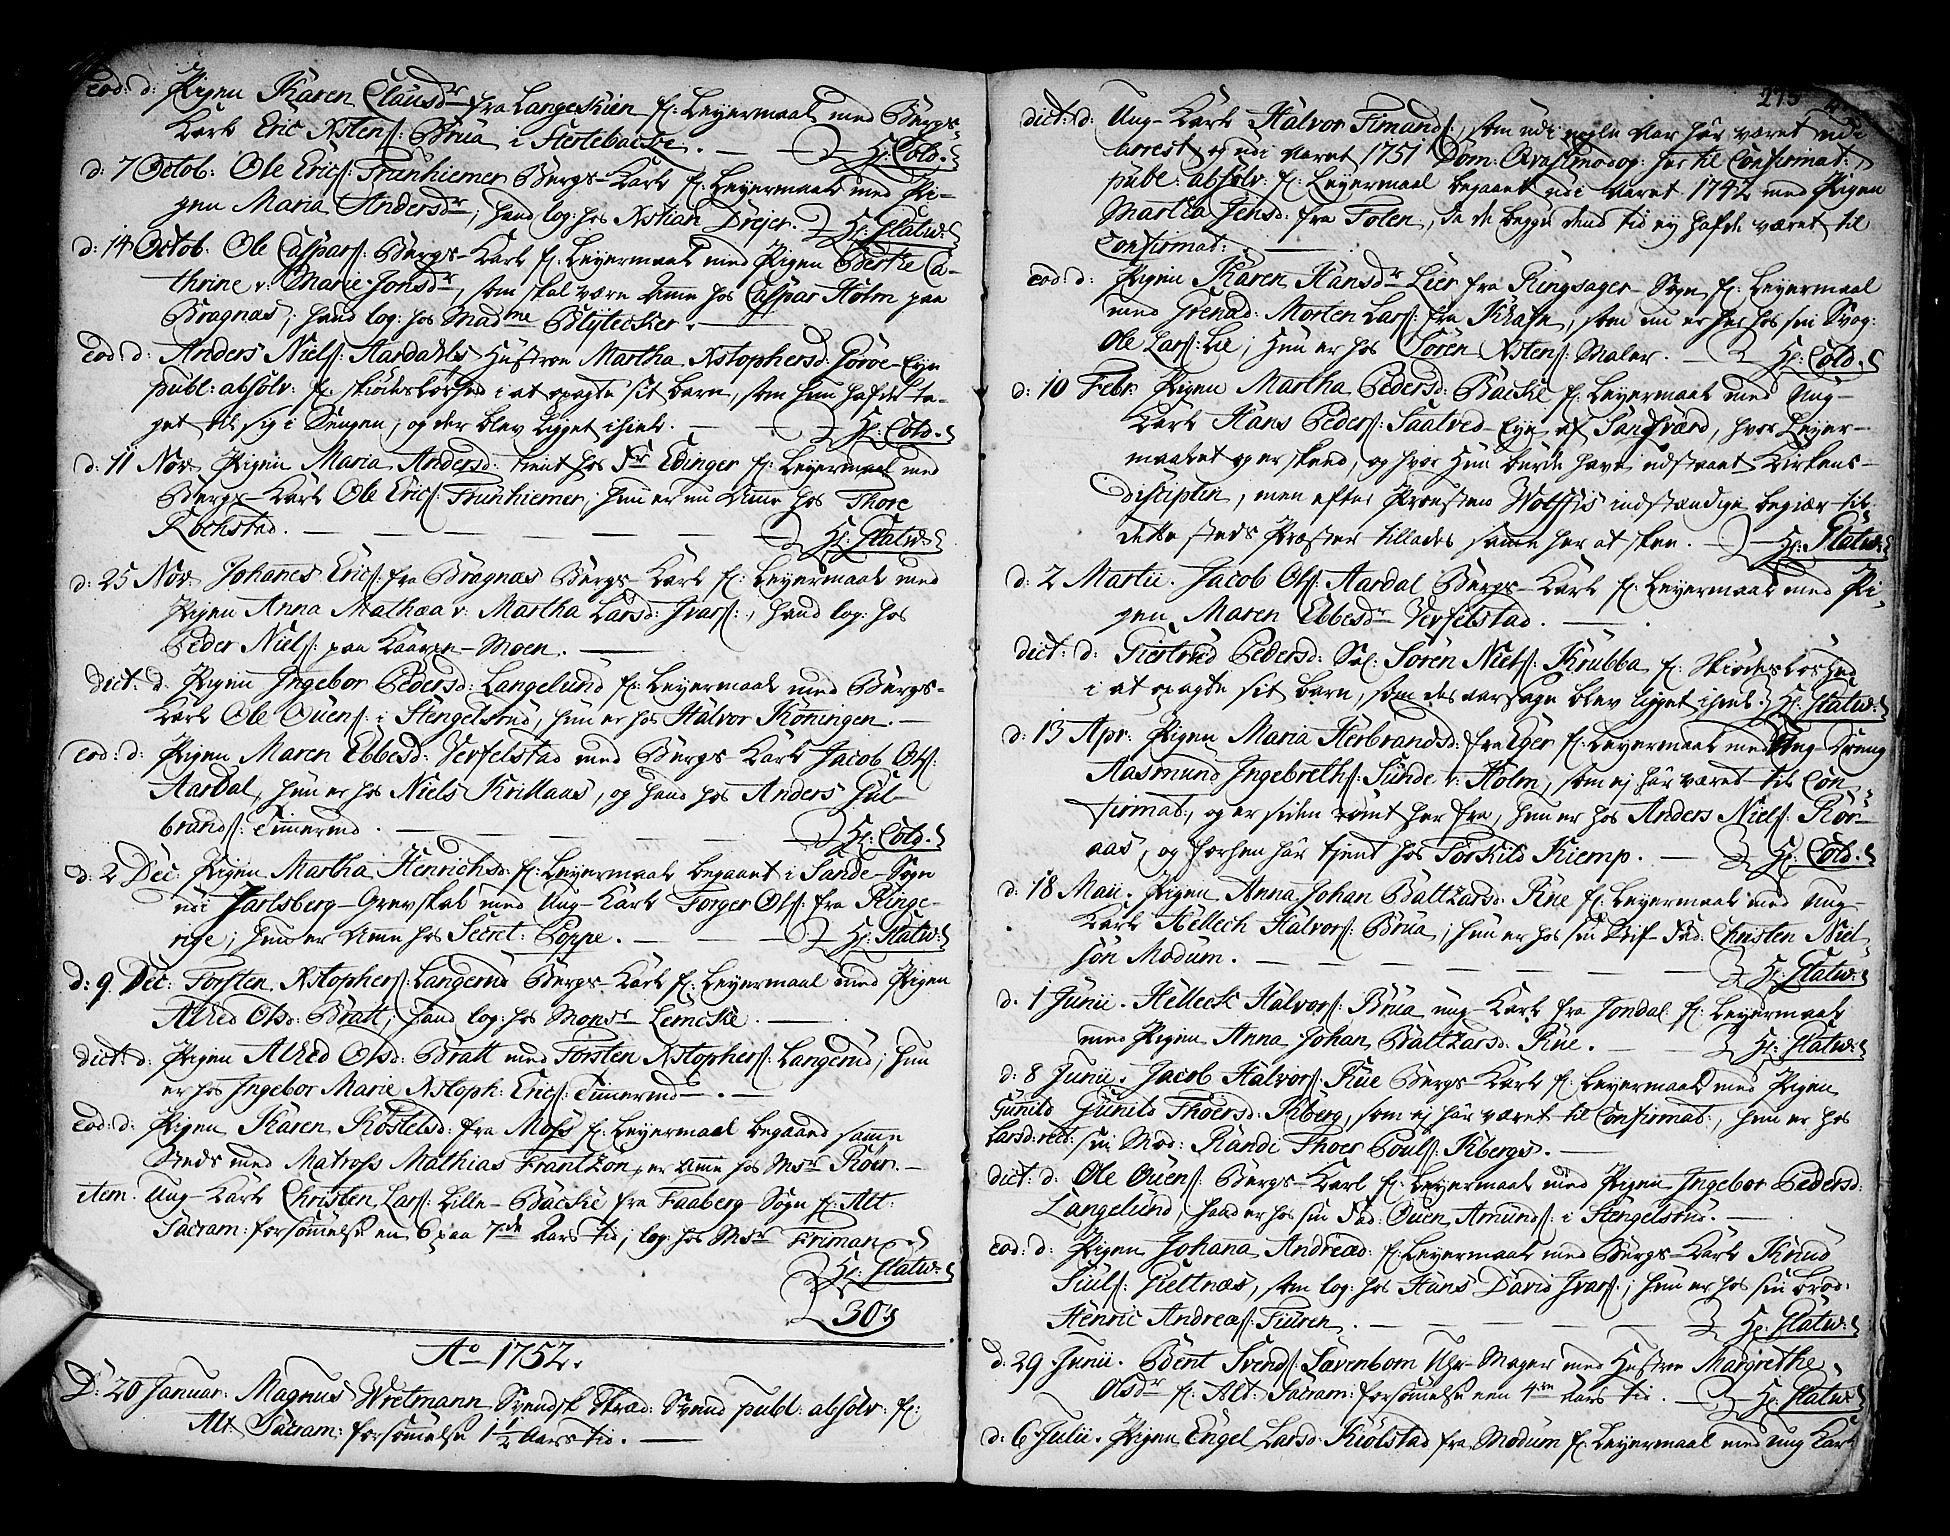 eod: d: Pigen Karen Clausdr fra Langeskien f: Leyermaal med Bergs-
Karl Eric Xstens: Brua i Hertebacke. — H: Cold.
d: 7 Octob: Ole Erics: Trunhiemer Bergs-Karl f: Leyermaal med Pi-
gen Maria Andersdr, hand log: hos Xstian Drejer. H: Statw:
d: 14 Octob. Ole Caspars: Bergs-Karl f: Leyermaal med Pigen Berthe Ca-
thrine v: Marie Jonsdr, som skal være Amme hos Caspar Holm paa
Bragnæs, hand log: hos Madme Blytecker. —
eod: d: Anders Niels: Aardahls Hustroe Martha Xstophersd: Goroe-Eye
publ: absolv: f: skiødesløshed i at opagte sit barn, som hun hafde ta-
get til sig i Sengen, og der blev ligget ihiel. — H: Cold.
d: 11 Nov: Pigen Maria Andersd: tient hos Fr Edinger f: Leyermaal med
Bergs-Karl Ole Erics: Trunhiemer, hun er nu Amme hos Thore
Rochstad. — H: Statw:
d: 25 Nov: Johanes Erics: fra Bragnæs Bergs-Karl f: Leyermaal med
Pigen Anna Mathæa v: Martha Larsd: Ivars:, hand log: hos
Peder Niels: paa Moen. —
dict: d: Pigen Ingebor Pedersd: Langelund f: Leyermaal med Bergs-
Karl Ole Ouens: i Stengelsrud, hun er hos Halvor Köningen. —
eod: d: Pigen Maren Ebbesd: Verfelstad med Bergs-Karl Jacob Ols:
Aardal, hun er hos Niels Krillaas, og hand hos Anders Gul-
brands: Timermd. — H: Cold.
d: 2 Dec: Pigen Martha Henrichsd: f: Leyermaal begaaet i Sande-Sogn
udi Jarlsberg-Grevskab med Ung-Karl Torger Ols: fra Ringe-
rige, hun er Amme hos Secret: Poppe. — H: Statw:
d: 9 Dec: Torsten Xstophers: Langerud Bergs-Karl f: Leyermaal med Pigen
Alhed Olsd: Bratt, hand log: hos Monsr Lemcke. —
dict: d: Pigen Alhed Olsd: Bratt med Torsten Xstophers: Langerud, hun
er hos Ingebor Marie Xstoph: Erics: Timermd —
eod: d: Pigen Karen Kostelsd: fra Moss f: Leyermaal begaaed samme
Steds med Matross Mathias Frantzon, er Amme hos Msr Röer. —
item. Ung-Karl Christen Lars: Lille-Backe fra Faaberg-Sogn f: Alt:
Sacram: forsømmelse en 6 paa 7de Aars tid, log: hos Msr Friman
H: Statw:
30
Ao 1752.
D: 20 Januar: Magnus Wretmann Svendsk Skræd: Svend publ: absolv: f:
Alt: Sacram: forsømmelse 1 1/2 Aars tid. —
275
dict: d: Ung-Karl Halvor Timands:, som udi nogle Aar har været udi
arrest, og udi Aaret 1751 Dom: Qvasimodog: her til Confirmat:,
publ: absolv: f: Leyermaal begaaet udi Aaret 1742 med Pigen
Martia Jensd: fra Tolen, da de begge dend tid ey hafde været til
Confirmat: —
eod: d: Pigen Karen Hansdr Lier fra Ringsager-Sogn f: Leyermaal
med Grenad: Morten Lars: fra Krafn, som nu er her hos sin Svog:
Ole Lars: Lie, hun er hos Sören Xstens: Maler. — H: Cold.
d: 10 Febr: Pigen Martha Pedersd: Backe f: Leyermaal med Ung-
Karl Hans Peders: Saatved-Eye af Sandsværd, hvor Leyer-
maalet og er skeed, og hvor hun burde have udstaaet Kirkens-
disciplin, men efter Provsten Wolffs indstændige begiær til
dette steds Præster tillades samme her at skee. — H: Statw:
d: 2 Martii. Jacob Ols: Aardal Bergs-Karl f: Leyermaal med Pi-
gen Maren Ebbesdr Verfelstad. —
dict: d: Giertrud Pedersd: Sal: Sören Niels: Krubba f: Skiødesløshed
i at opagte sit barn, som blev ligget ihiel. H: Statw:
d: 13 Apr: Pigen Maria Herbrandsd: fra Eger f: Leyermaal med Ung-Dreng
Aasmund Ingebreths: Sunde v: Holm, som ej har været til Con-
firmat:, og er siden rømt her fra, hun er hos Anders Niels: Kor-
aas, og forhen har tient hos Torkild Kiemp. — H: Cold.
d: 18 Maii. Pigen Anna Johan Baltzarsd: Rue f: Leyermaal med Ung-
Karl Hellech Halvors: Brua, hun er hos sin Stif-Fad: Christen Niel-
sön Modum. — H: Statw:
d: 1 Junii. Helleck Halvors: Brua ung-Karl fra Jondal f: Leyermaal
med Pigen Anna Johan Baltzarsd: Rue. — H: Statw:
d: 8 Junii. Jacob Halvors: Rue Bergs-Karl f: Leyermaal med Pigen
Gunild Gunild Thoersd: Kiberg, som ej har været til Confirmat:, hun er hos
Larsd: rect: sin Mod: Randi Thoer Pouls: Kibergs. —
dict: d: Ole Ouens: Bergs-Karl f: Leyermaal med Pigen Ingebor Pedersd:
Langelund, hand er hos sin Fad: Ouen Amunds: i Stengelsrud. —
eod: d: Pigen Johana Andread: f: Leyermaal med Bergs-Karl Knud
Giuls: Glettnæs, som log: hos Hans David Ivars:, hun er hos sin brod:
Henric Andreæs: Fiuren. — H: Statw:
d: 29 Junii. Bent Svends: Lövenborn Uhr-Mager med Hustroe Margrethe
Olsdr f: Alt: Sacram: forsømmelse en 4re Aars tid. — H: Statw:
d: 6 Julii. Pigen Engel Larsd: Kiölstad fra Modum f: Leyermaal med Ung Karl